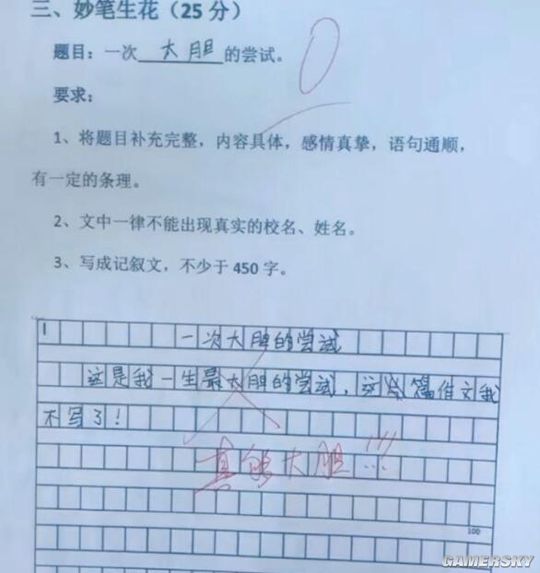 三、妙笔生花（25分）
题目：一次 大胆 的尝试。
0
要求：
1、将题目补充完整，内容具体，感情真挚，语句通顺，
有一定的条理。
2、文中一律不能出现真实的校名、姓名。
3、写成记叙文，不少于450字。
一次大胆的尝试
这是我一生最大胆的尝试，这篇作文我
不写了！
真能大胆!!!
100
GAMERSKY